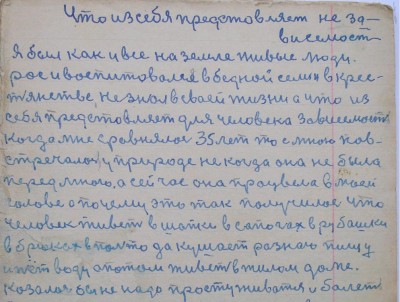 Что из себя представляет не за-
висемост
Я был как и все на земле живые люди.
рос и воспитовался в бедной семи в крес-
тянстве, не знол в своей жизни а что из
себя представляет для человека зависемость
Когда мне сровнялос 35 лет то с мною пов-
стречалос у природе не когда она не была
передмною, а сей час она процвела в моей
голове о почему это так получилос что
человек живёт в шапки в сапогах в рубашки
в брюках в полто да кушает разною пищу
и пёт воду а потом живёт в жилом доме.
Козалос бы не надо простуживатя и болеть